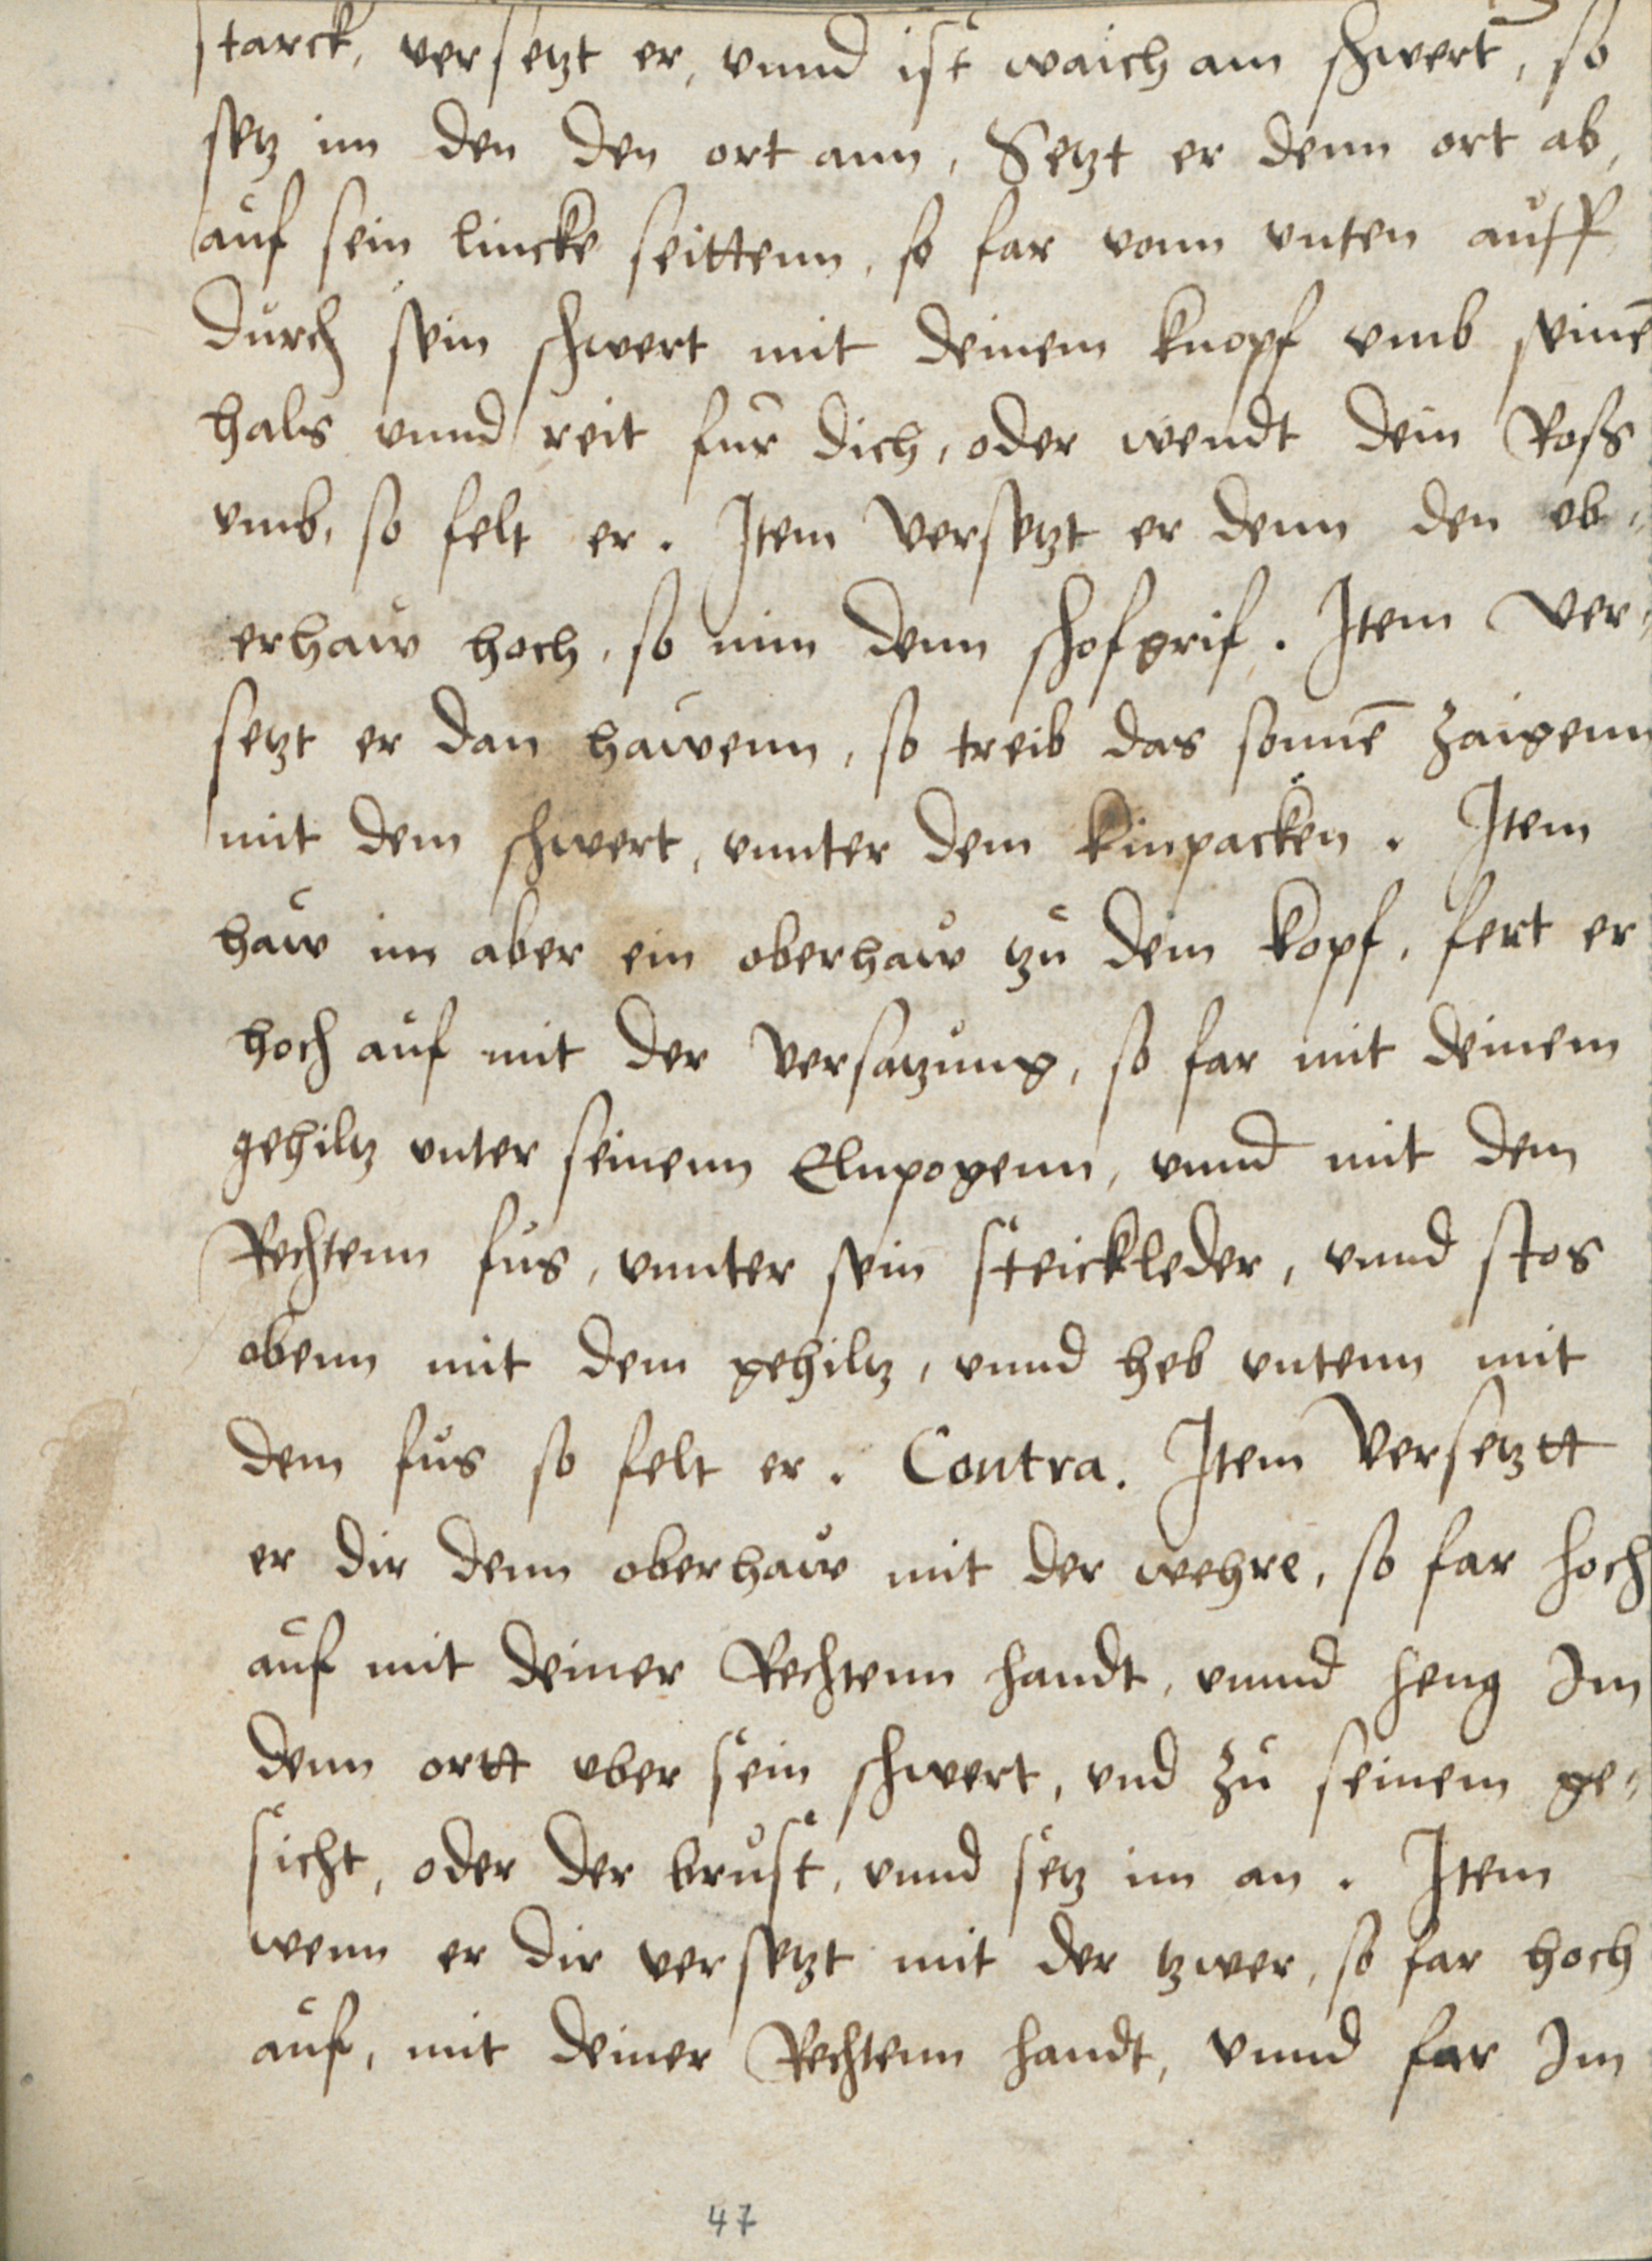 starck, versetzt er, vnnd ist waich am schwert, so
setz im den den ort ann, Setzt er denn ort ab,
auf sein lincke seittenn, so far vonn vnten auff
durch sein schwert mit deinem knopf vmb seinē
hals vnnd reit fur dich, oder wendt dein Roß
vmb, so felt er. Item Versetzt er denn den ob-
erhaw hoch, so nim denn schofgrif. Item Ver-
setzt er dan hawenn, so treib das sonnē zaigenn
mit dem schwert, vnnter dem kinpacken. Item
haw im aber ein oberhaw tzu dem kopf, fert er
hoch auf mit der Versatzung, so far mit deinem
gehiltz vnter seinenn Elnpogenn, vnnd mit dem
Rechtenn fus, vnnter sein steickleder, vnnd stos
obenn mit dem gehiltz, vnnd heb vntenn mit
dem fus so felt er. Contra. Item Versetztt
er dir denn oberhaw mit der wehre, so far hoch
auf mit deiner Rechtenn handt, vnnd heng Im
denn ortt vber sein schwert, vnd zu seinem ge-
sicht, oder der brust, vnnd setz im an. Item
wenn er dir versetzt mit der tzwer, so far hoch
auf, mit deiner Rechtenn handt, Vnnd far Im
47